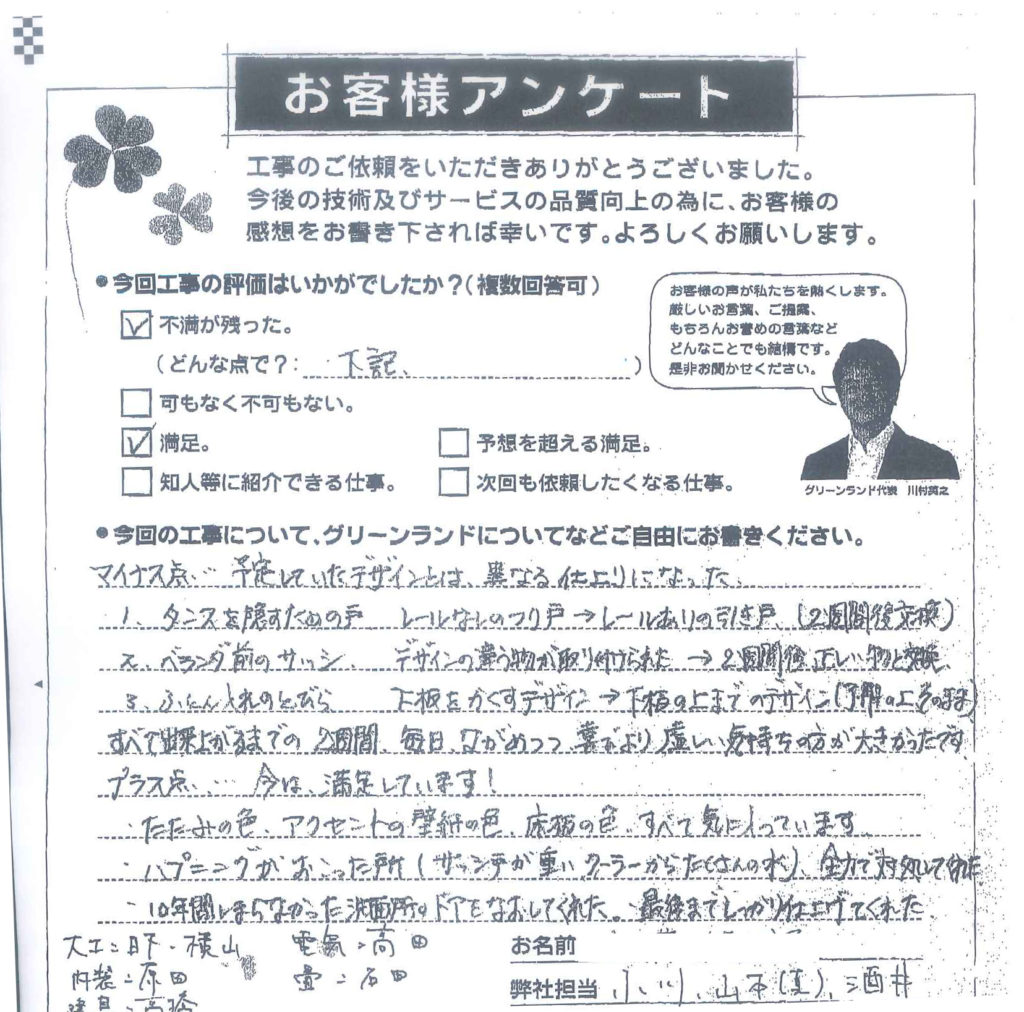 お客様アンケート
工事のご依頼をいただきありがとうございました。
今後の技術及びサービスの品質向上の為に、お客様の
感想をお書き下されば幸いです。よろしくお願いします。
●今回工事の評価はいかがでしたか？（複数回答可）
不満が残った。
（どんな点で？： 下記、 ）
可もなく不可もない。
満足。
予想を超える満足。
知人等に紹介できる仕事。
次回も依頼したくなる仕事。
お客様の声が私たちを熱くします。
厳しいお言葉、ご提案、
もちろんお誉めの言葉など
どんなことでも結構です。
是非お聞かせください。
グリーンランド代表 川村英之
●今回の工事について、グリーンランドについてなどご自由にお書きください。
マイナス点… 予定していたデザインとは、異なる仕上りになった
1、タンスを隠すための戸 レールなしのつり戸→レールありの引き戸、(2週間後交換)
2、ベランダ前のサッシ、 デザインの違う物が取り付けられた → 2週間後 正しい物と交換
3、ふとん入れのとびら 下板をかくすデザイン→下板の上までのデザイン(了解の上そのまま)
すべて出来上がるまでの 2週間、毎日、ながめつつ 喜びより 虚しい気持ちの方が大きかったです
プラス点… 今は、満足しています！
・たたみの色、アクセントの壁紙の色、床板の色 すべて気に入っています
・ハプニングがおこった時（サッシ 重い クーラーからたくさんの水）、全力で対処してくれた
・10年間しまらなかった洗面所のドアをなおしてくれた。 最後までしっかり仕上げてくれた
大工：日下・横山 電気：高田
内装：原田 畳：石田
建具：高橋
お名前
弊社担当 小川、山本(真)、酒井